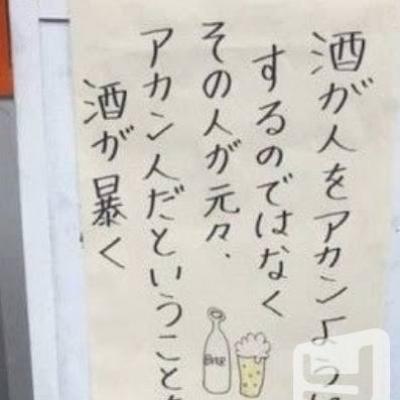 酒が人をアカンよう
するのではなく
その人が元々、
アカン人だということ
酒が暴く
Beer